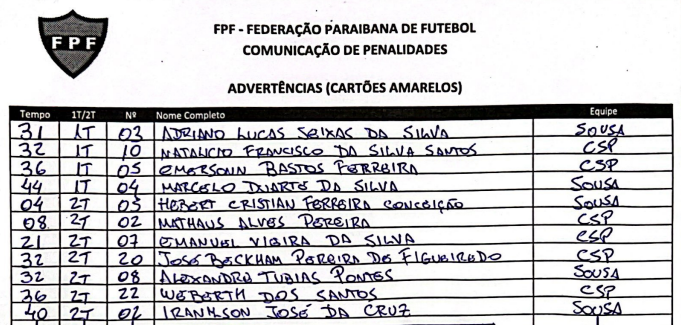 FPF
FPF - FEDERAÇÃO PARAIBANA DE FUTEBOL
COMUNICAÇÃO DE PENALIDADES
ADVERTÊNCIAS (CARTÕES AMARELOS)
Tempo 1T/2T Nº Nome Completo Equipe
31 1T 03 ADRIANO LUCAS SEIXAS DA SILVA SOUSA
32 1T 10 NATALICIO FRANCISCO DA SILVA SANTOS CSP
36 1T 05 EMERSONN BASTOS FERREIRA CSP
44 1T 04 MARCELO DUARTE DA SILVA SOUSA
04 2T 05 HEBERT CRISTIAN FERREIRA CONCEIÇÃO SOUSA
08 2T 02 MATHAUS ALVES PEREIRA CSP
21 2T 07 EMANUEL VIEIRA DA SILVA CSP
32 2T 20 JOSÉ BECKHAM PEREIRA DE FIGUEIREDO CSP
32 2T 08 ALEXANDRE TUBIAS PONTES SOUSA
36 2T 22 WEBERTH DOS SANTOS CSP
40 2T 02 IRANILSON JOSÉ DA CRUZ SOUSA